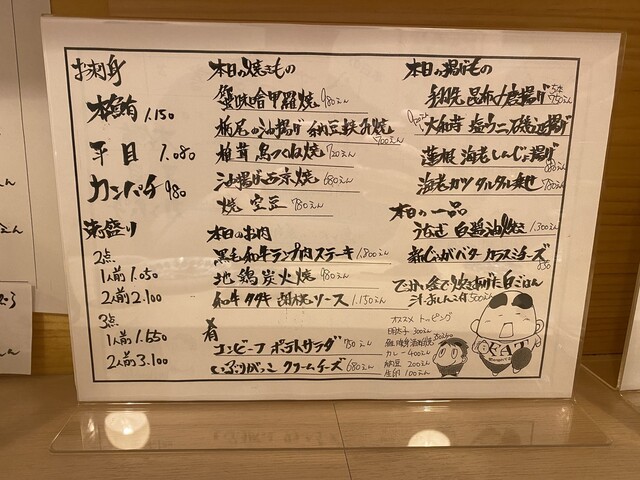 お刺身
本鮪 1.150
平目 1.080
カンパチ 980
満盛り
2点
1人前 1.050
2人前 2.100
3点
1人前 1.550
2人前 3.100
本日の焼きもの
蟹味噌甲羅焼 980えん
栃尾の油揚げ 納豆挟み焼 700えん
椎茸 鳥つくね焼 720えん
油揚げ西京焼 680えん
焼 空豆 780えん
本日のお肉
黒毛和牛ランプ肉ステーキ 1.800えん
地鶏炭火焼 980えん
和牛タタキ 胡桃ソース 1.150えん
肴
コンビーフ ポテトサラダ 780えん
いぶりがっこ クリームチーズ 680えん
本日の揚げもの
手羽先 昆布〆唐揚げ 5本 750えん
大和芋 塩ウニ 磯辺揚げ
蓮根 海老しんじょ揚げ 880えん
海老カツ タルタル乗せ 780えん
本日の一品
うなぎ 白醤油焼き 1.300えん
新じゃがバター カラスミチーズ 850
でっかい釜で炊きあげた白ごはん
汁・おしんこ付 500えん
オススメ トッピング
明太子 300えん
カレー 400えん
納豆 200えん
生卵 100えん